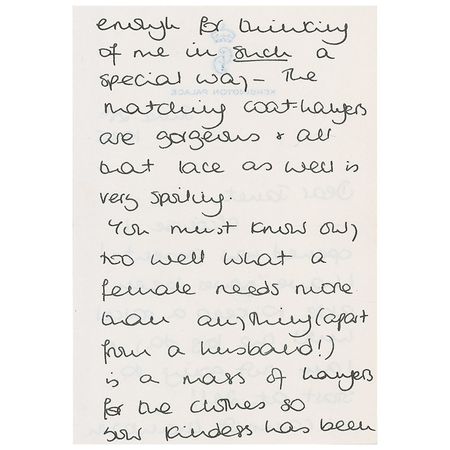 enough for thinking
of me in such a
special way - The
matching coat-hangers
are gorgeous & all
that lace as well is
very spoiling.
You must know only
too well what a
female needs more
than anything (apart
from a husband!)
is a mass of hangers
for the clothes so
your kindess has been
KENSINGTON PALACE
Dear Janet